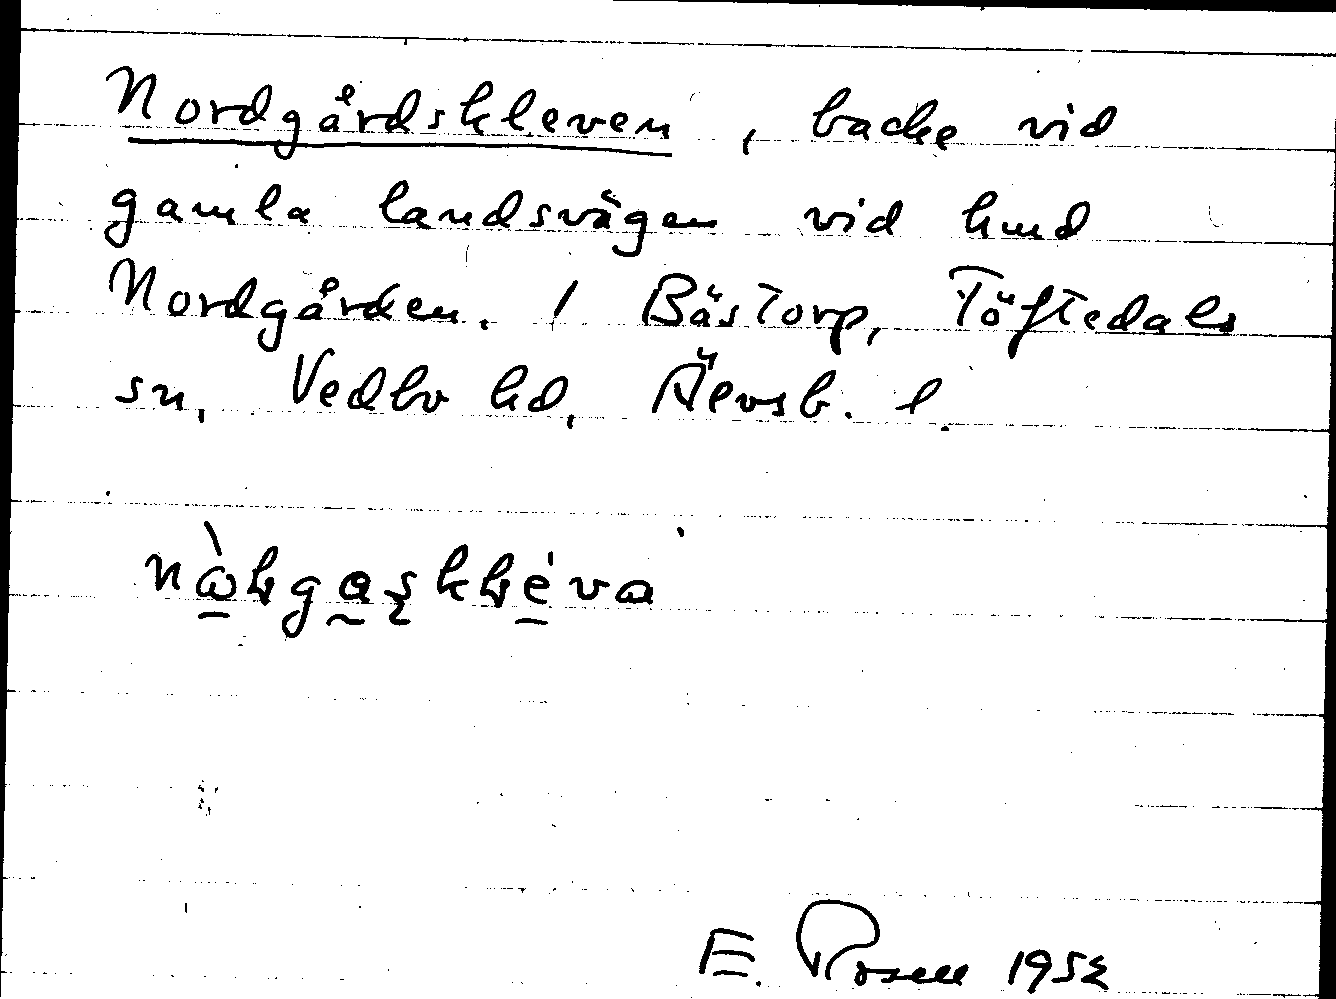 Nordgårdskleven, backe vid
gamla landsvägen vid hmd
Nordgården. / Båstorp, Töftedals
sn, Vedbo hd, Älvsb. l.
E. Rosell 1952